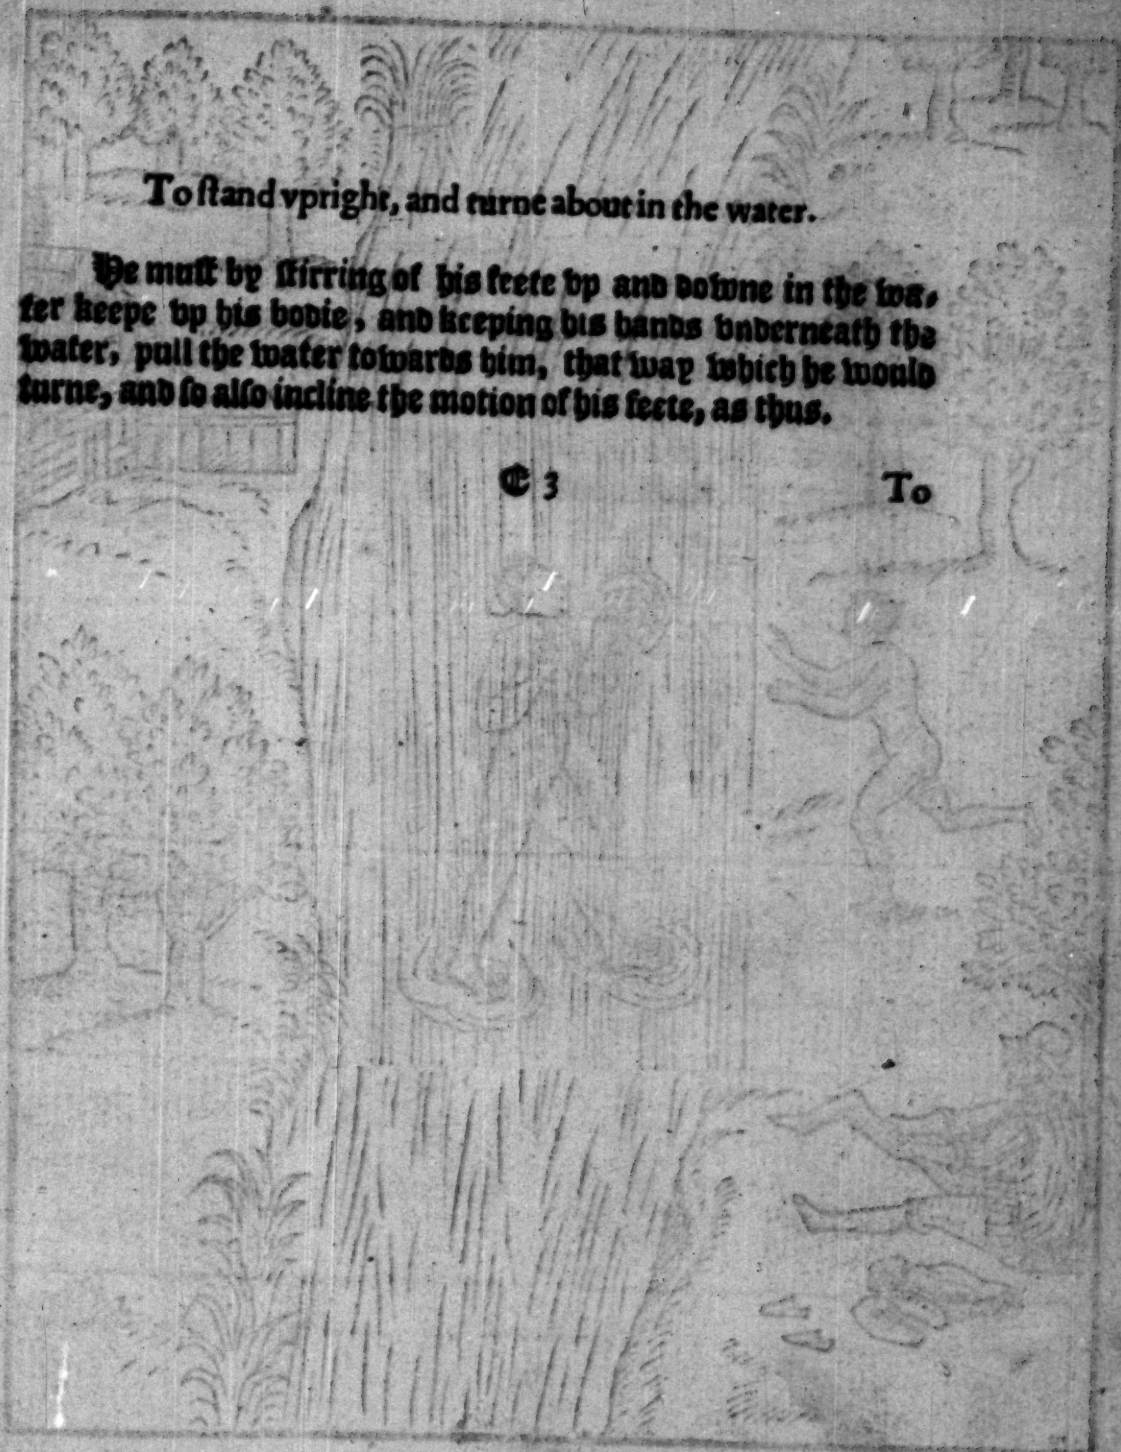 To ſtand vpright, and turne about in the water.
He muſt by ſtirring of his feete vp and downe in the wa-
ter keepe vp his bodie, and keeping his hands vnderneath the
water, pull the water towards him, that way which he would
turne, and ſo alſo incline the motion of his feete, as thus.
E 3 To